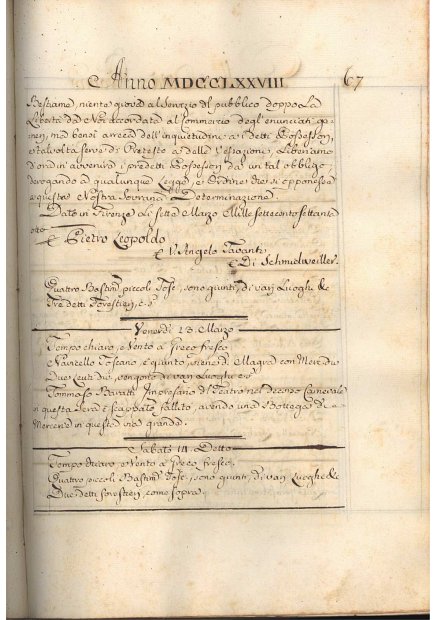 Anno MDCCLXXVIII 67
Bestiame, niente giova al Servizio del pubblico doppo La
Libertà da Noi accordata al Commercio degl'enunciati ge-
neri, ma bensì arreca dell'inquietudini a i detti Possessori,
e talvolta serve di Pretesto a delle Vessazioni, Liberiamo
d'ora in avvenire i predetti Possessori da un tal obbligo
derogando a qualunque Legge, e Ordine che si opponesse
a questa Nostra Sovrana Determinazione.
Dato in Firenze Li sette Marzo Mille settecento settanta
otto
Pietro Leopoldo
V. Angelo Tavanti
Di Schmidweiller
Quattro Bastim.ti piccoli Tosc.i, sono giunti, di varj Luoghi &
Tre detti Forestieri, e.s
Venerdì 13 Marzo
Tempo chiaro, e Vento a Greco fresco
Navicello Toscano, è giunto, viene d. Magra con Mercanzie
Due Leuti di vengono di varj Luoghi e s.
Tommaso Baratti Impresario del Teatro nel decorso Carnevale
in questa sera è scappato fallito, avendo una Bottega di
Mercerie in questa via grande.
Sabato 14 Detto
Tempo chiaro, e Vento a Greco fresco.
Quattro piccoli Bastim.ti Tosc.i, sono giunti, di varj Luoghi &
Due detti forestieri, come sopra